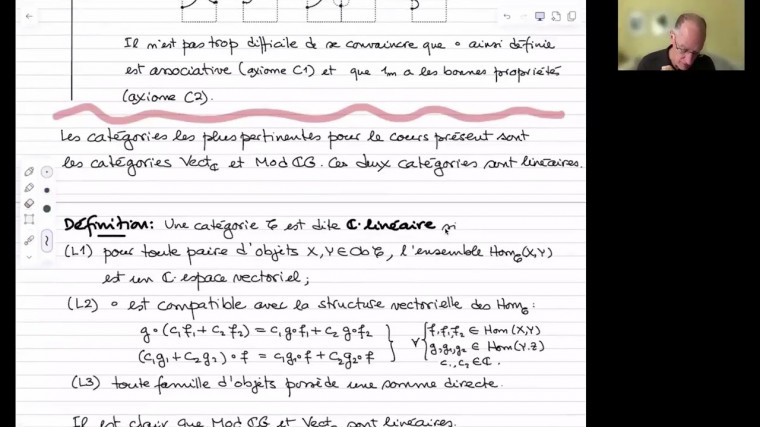 Il n'est pas trop difficile de se convaincre que ∘ ainsi définie
est associative (axiome C1) et que 1m a les bonnes propriétés
(axiome C2).
Les catégories les plus pertinentes pour le cours présent sont
les catégories Vect_ℂ et Mod ℂG. Ces deux catégories sont linéaires.
Définition: Une catégorie 𝒞 est dite ℂ-linéaire si
(L1) pour toute paire d'objets X, Y ∈ Ob 𝒞, l'ensemble Hom_𝒞(X,Y)
est un ℂ-espace vectoriel;
(L2) ∘ est compatible avec la structure vectorielle des Hom_𝒞:
g∘(c₁f₁ + c₂f₂) = c₁g∘f₁ + c₂g∘f₂
(c₁g₁ + c₂g₂)∘f = c₁g₁∘f + c₂g₂∘f
∀ f, f₁, f₂ ∈ Hom(X,Y)
g, g₁, g₂ ∈ Hom(Y,Z)
c₁, c₂ ∈ ℂ.
(L3) toute famille d'objets possède une somme directe.
Il est clair que Mod ℂG et Vect_ℂ sont linéaires.